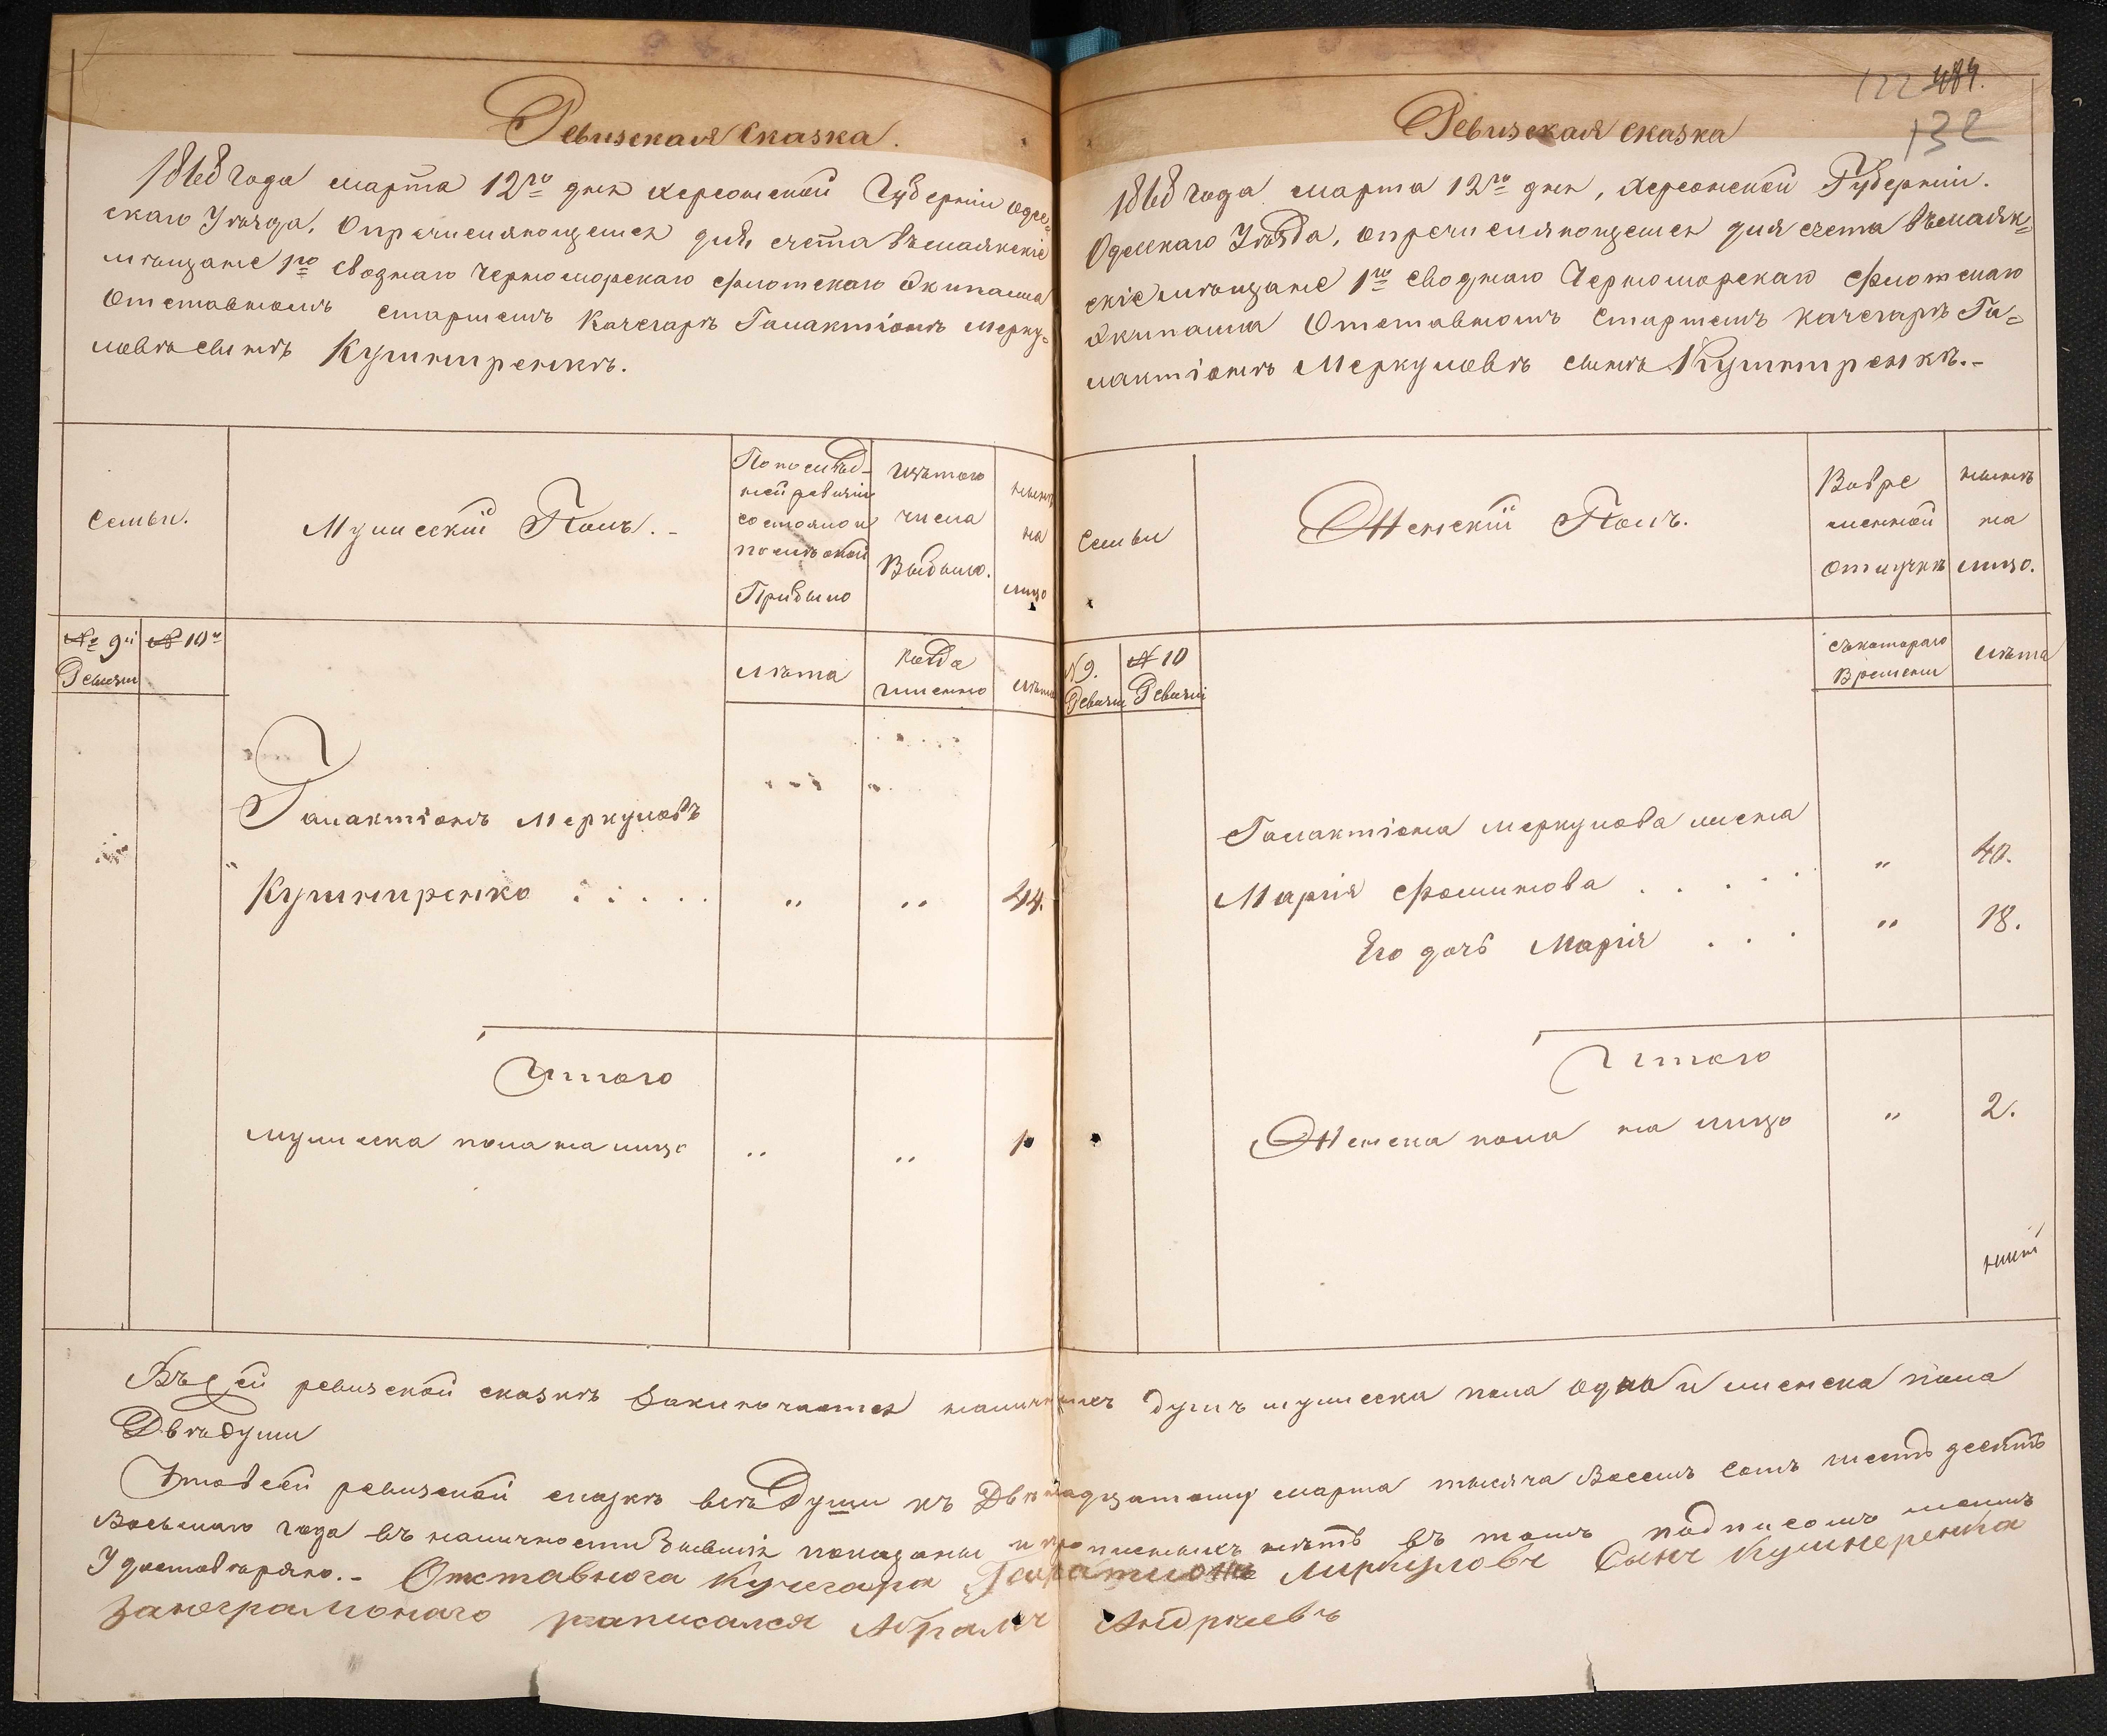 Ревизская сказка.
1868 года марта 12го дня Херсонской Губерніи Одес-
скаго Уѣзда, О причисляющемся для счета въ маякскіе
мѣщане 1го своднаго Черноморскаго флотскаго Экипажа
Отставномъ старшемъ Качегарѣ Галактіонѣ Мерку-
ловѣ сынѣ Кушниренкѣ.
Семьи.
Мужескій Полъ. -
По послѣд-
ней ревизіи
состояло и
послѣ оной
Прибыло
Изъ того
числа
Выбыло.
нынѣ
на
лицо
№ 9й
Ревизіи
№ 10й
лѣта
Когда
именно
лѣта
Галактіонъ Меркуловъ
Кушниренко . . . . . " " 44.
Итого
мужеска пола на лицо " " 1
122 484.
132
Ревизская сказка
1868 года марта 12го дня, Херсонской Губерніи.
Одесскаго Уѣзда, о причисляющемся для счета въ маяк-
скіе мѣщане 1го своднаго Черноморскаго флотскаго
Экипажа Отставномъ Старшемъ качегарѣ Га-
лактіонѣ Меркуловѣ сынѣ Кушниренкѣ. -
Семьи
Женскій Полъ.
Вовре
менной
отлучкѣ
нынѣ
на
лицо.
№ 9.
Ревизіи
№ 10
Ревизіи
съ котораго
Времени
лѣта
Галактіона Меркулова жена
Марія Фоминова . . . . . " 40.
Его дочь Марія . . . " 18.
Итого
Женска пола на лицо " 2.
Въ сей ревизской сказкѣ Заключается наличныхъ душъ мужеска пола одна и женска пола
Двѣ души
Что въ сей ревизской сказкѣ всѣ Души къ Двѣнадцатому марта тысяча Восемь сотъ шестьдесятъ
Восьмаго года въ наличности бывшія показаны и прописныхъ нѣтъ въ томъ подписомъ моимъ
Удостовѣряю. - Отставнога Кучегара Галатионъ Миркуловъ Сынъ Кушнеренка
Занеграмонаго расписался Абрамъ Андрѣевъ